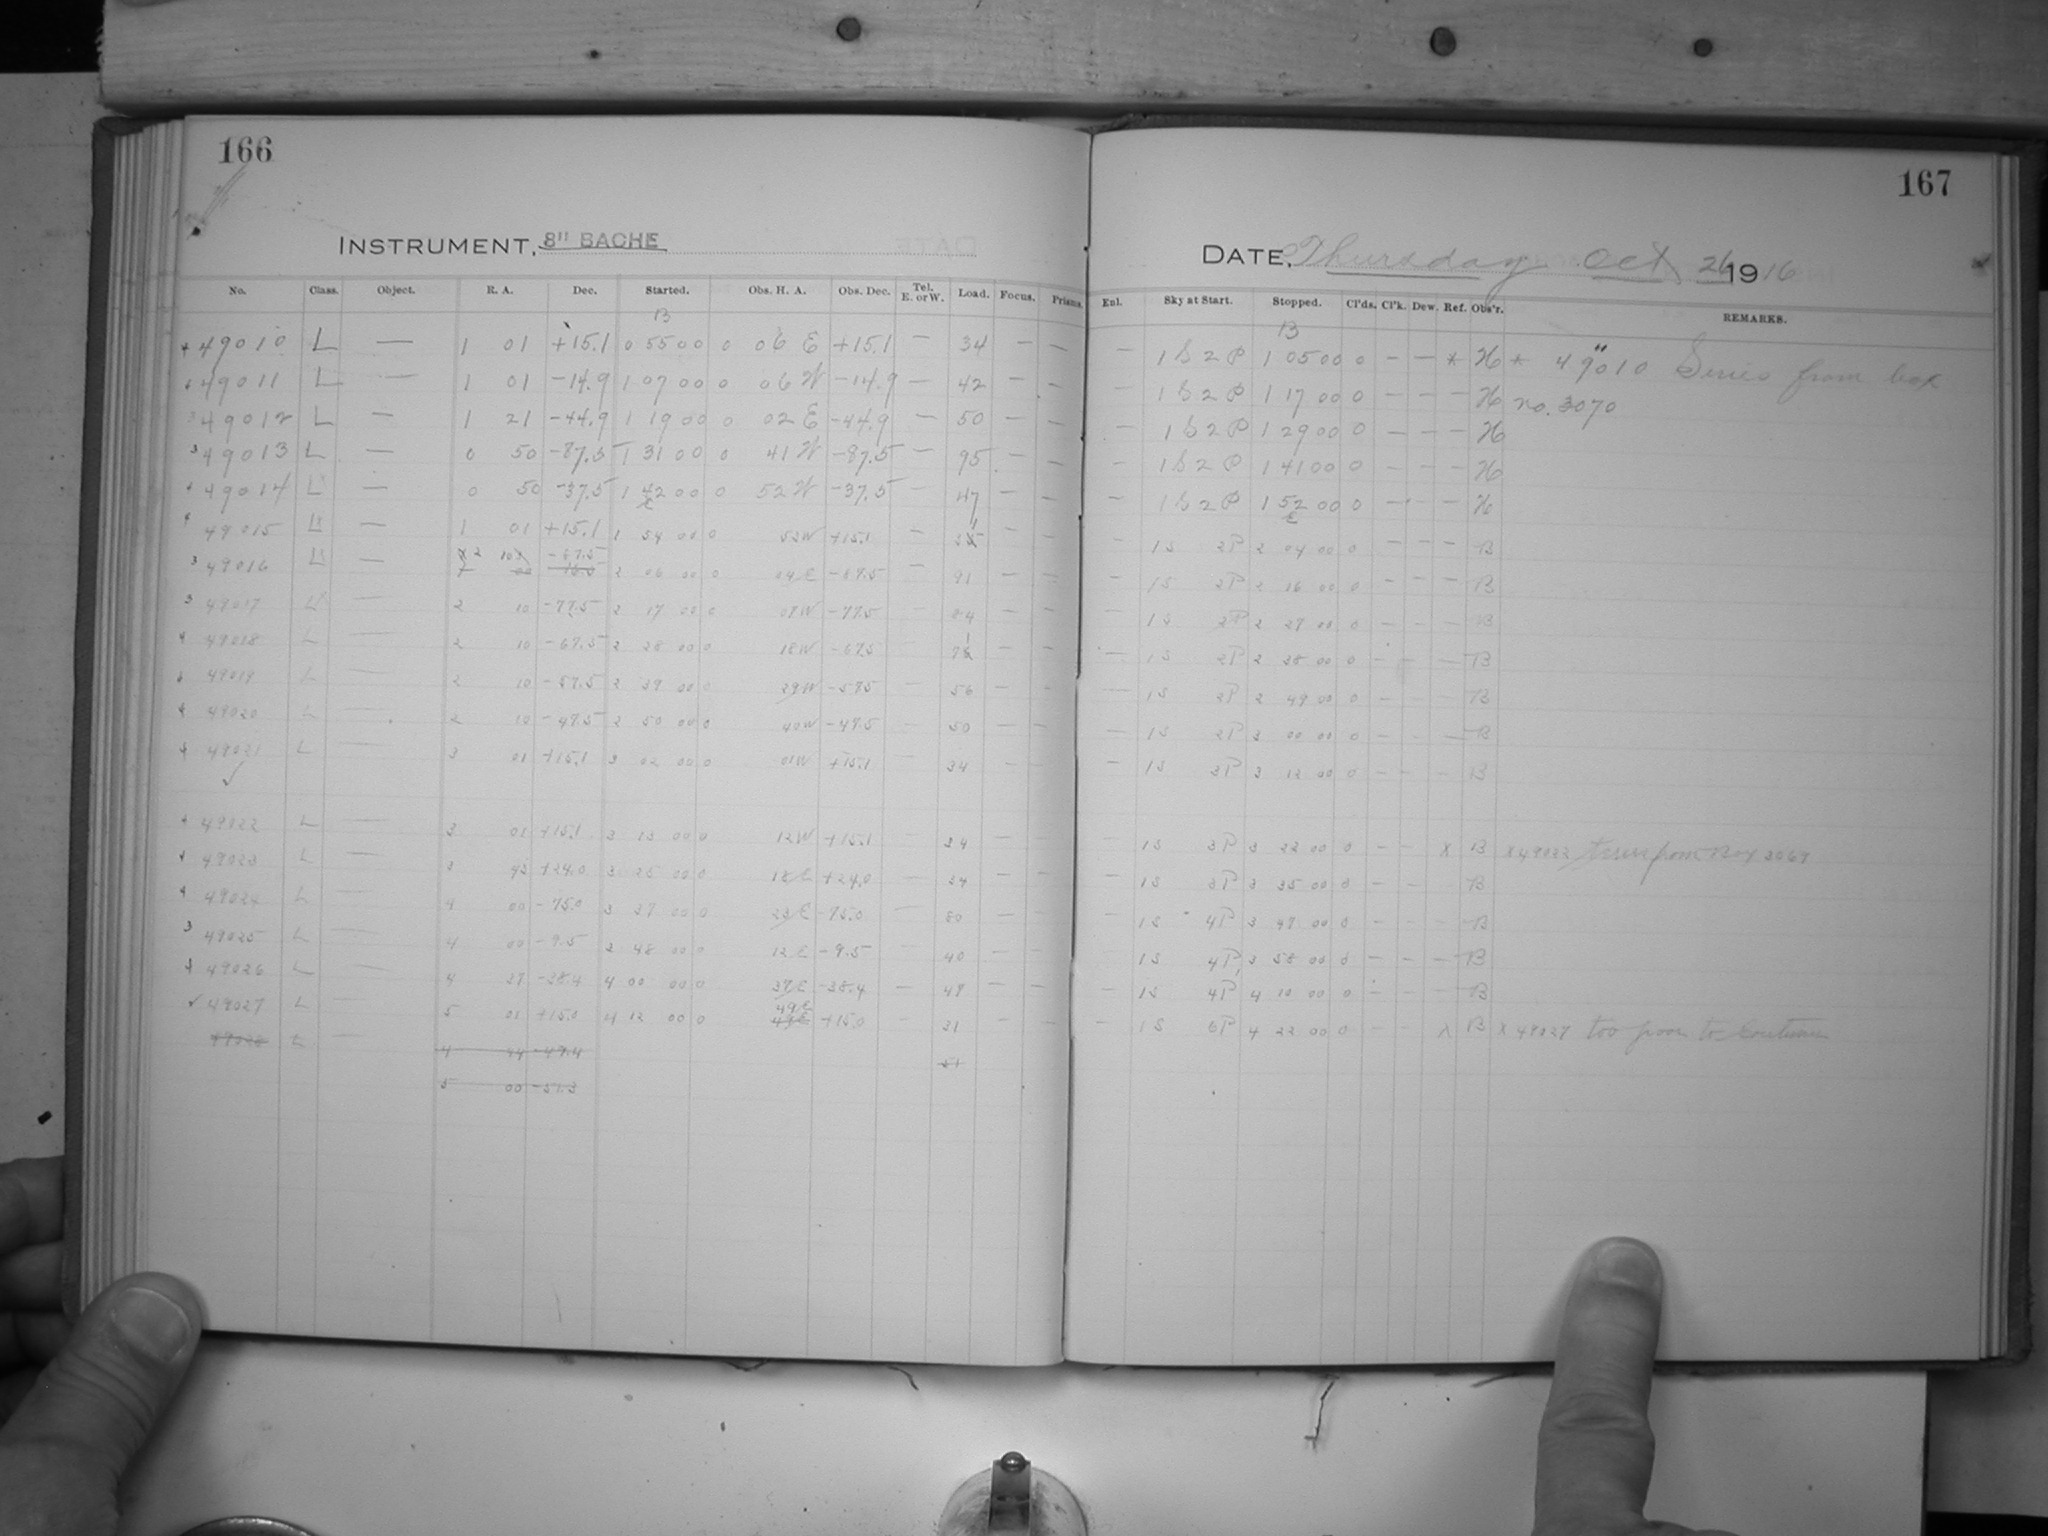 166
INSTRUMENT, 8" BACHE
No. Class. Object. R. A. Dec. Started. Obs. H. A. Obs. Dec. Tel. E. or W. Load. Focus. Prisms.
B
49010 L — 1 01 +15.1 0 55 00 0 06 E +15.1 — 34 — —
49011 L — 1 01 -14.9 1 07 00 0 06 W -14.9 — 42 — —
49012 L — 1 21 -44.9 1 19 00 0 02 E -44.9 — 50 — —
49013 L — 0 50 -87.5 1 31 00 0 41 W -87.5 — 95 — —
49014 L — 0 50 -37.5 1 42 00 0 52 W -37.5 — 47 — —
49015 L — 1 01 +15.1 1 54 00 0 53W +15.1 —
49016 L — 2 10 -87.5 2 06 00 0 04E -87.5 — 91 — —
49017 L — 2 10 -77.5 2 17 00 0 07W -77.5 — 84 — —
49018 L — 2 10 -67.5 2 28 00 0 18W -67.5 — — —
49019 L — 2 10 -57.5 2 39 00 0 29W -57.5 — 56 — —
49020 L — 2 10 -47.5 2 50 00 0 40W -47.5 — 50 — —
49021 L — 3 01 +15.1 3 02 00 0 01W +15.1 — 34 — —
49022 L — 3 01 +15.1 3 13 00 0 12W +15.1 — 34 — —
49023 L — 3 43 +24.0 3 25 00 0 18E +24.0 — 34 — —
49024 L — 4 00 -75.0 3 37 00 0 23E -75.0 — 80 — —
49025 L — 4 00 -9.5 3 48 00 0 12E -9.5 — 40 — —
49026 L — 4 37 -38.4 4 00 00 0 37E -38.4 — 47 — —
49027 L — 5 01 +15.0 4 12 00 0 49E +15.0 — 31 — —
49028 L — 4 44 -49.4 51
5 00 -51.3
167
DATE, Thursday Oct 26 1916
Enl. Sky at Start. Stopped. Cl'ds. Cl'k. Dew. Ref. Obs'r. REMARKS.
B
— 1 S 2 P 1 05 00 0 — — * H * 49010 Series from box
— 1 S 2 P 1 17 00 0 — — — H no. 3070
— 1 S 2 P 1 29 00 0 — — — H
— 1 S 2 P 1 41 00 0 — — — H
— 1 S 2 P 1 52 00 0 — — — H
— 1S 2P 2 04 00 0 — — — B
— 1S 2P 2 16 00 0 — — — B
— 1S 2P 2 27 00 0 — — — B
— 1S 2P 2 38 00 0 — — — B
— 1S 2P 2 49 00 0 — — — B
— 1S 2P 3 00 00 0 — — — B
— 1S 3P 3 12 00 0 — — — B
— 1S 3P 3 22 00 0 — — x B x 49022 series from Box 3069
— 1S 3P 3 35 00 0 — — B
— 1S 4P 3 47 00 0 — — — B
— 1S 4P 3 58 00 0 — — — B
— 1S 4P 4 10 00 0 — — — B
— 1S 6P 4 22 00 0 — — x B x 49027 too poor to continue